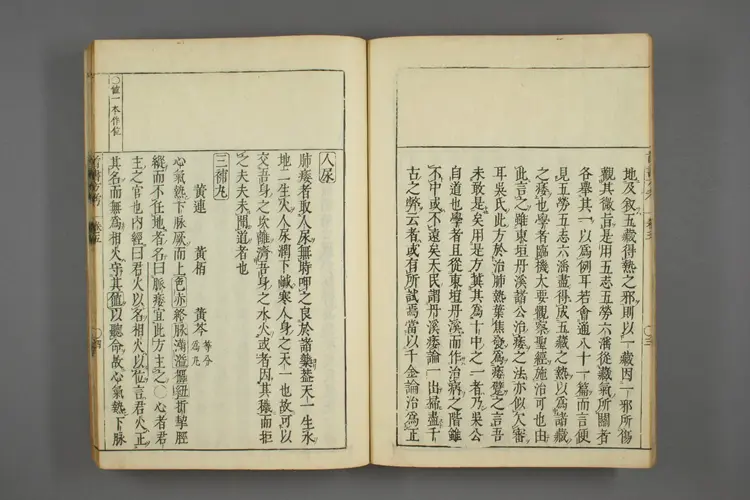 地及叙五藏得熱之邪則以一藏因一邪所傷
觀其微言是用五志五勞六淫從藏氣所關者
各舉其一以為例耳若會通八十一篇而言便
見五勞五志六淫盡得成五藏之熱以為諸藏
之痿也學者臨機大要觀察聖經施治可也由
此言之雖東垣丹溪諸公治痿之法亦似大審
耳吳氏此方於治肺熱葉焦發為痿躄之言吾
未敢是矣用是方冀其為十中之一者乃吳公
自道也學者且從東垣丹溪而作治病之階雖
不中或不遠矣天民謂丹溪痿論一出掃盡千
古之弊云者或有所試焉當以千金論治為正
〇值一本作位
人尿
肺痿者取人尿無時呷之良於諸藥蓋天一生水
地二生火人尿潤下鹹寒人身之天一也故可以
交吾身之坎離濟吾身之水火或者因其穢而拒
之夫夫未聞道者也
三補丸
黃連 黃栢 黃芩 等分為丸
心氣熱下脉厥而上色亦絡脉滿溢樞紐折挈脛
縱而不任地者名曰脈痿宜此方主之〇心者君
主之官也內經曰君火以名相火以位言君火正
其名而無為相火守其值以聽命故心氣熱下脉